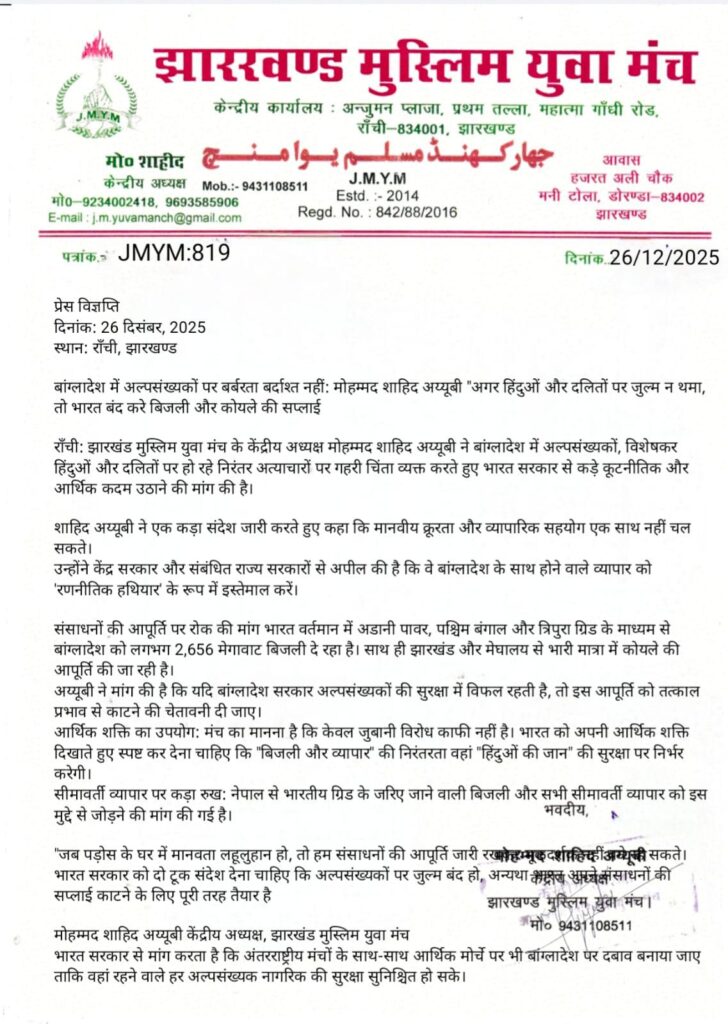 J.M.Y.M
झाररवण्ड मुस्लिम युवा मंच
केन्द्रीय कार्यालय : अन्जुमन प्लाजा, प्रथम तल्ला, महात्मा गाँधी रोड,
राँची–834001, झारखण्ड
جھارکھنڈ مسلم یوا منچ
मो० शाहीद
केन्द्रीय अध्यक्ष
Mob.:- 9431108511
मो०–9234002418, 9693585906
E-mail : j.m.yuvamanch@gmail.com
J.M.Y.M
Estd. :- 2014
Regd. No. : 842/88/2016
आवास
हजरत अली चौक
मनी टोला, डोरण्डा–834002
झारखण्ड
पत्रांक. JMYM:819
दिनांक..26/12/2025
प्रेस विज्ञप्ति
दिनांक: 26 दिसंबर, 2025
स्थान: राँची, झारखण्ड
बांग्लादेश में अल्पसंख्यकों पर बर्बरता बर्दाश्त नहीं: मोहम्मद शाहिद अय्यूबी "अगर हिंदुओं और दलितों पर जुल्म न थमा,
तो भारत बंद करे बिजली और कोयले की सप्लाई
राँची: झारखंड मुस्लिम युवा मंच के केंद्रीय अध्यक्ष मोहम्मद शाहिद अय्यूबी ने बांग्लादेश में अल्पसंख्यकों, विशेषकर
हिंदुओं और दलितों पर हो रहे निरंतर अत्याचारों पर गहरी चिंता व्यक्त करते हुए भारत सरकार से कड़े कूटनीतिक और
आर्थिक कदम उठाने की मांग की है।
शाहिद अय्यूबी ने एक कड़ा संदेश जारी करते हुए कहा कि मानवीय क्रूरता और व्यापारिक सहयोग एक साथ नहीं चल
सकते।
उन्होंने केंद्र सरकार और संबंधित राज्य सरकारों से अपील की है कि वे बांग्लादेश के साथ होने वाले व्यापार को
'रणनीतिक हथियार' के रूप में इस्तेमाल करें।
संसाधनों की आपूर्ति पर रोक की मांग भारत वर्तमान में अडानी पावर, पश्चिम बंगाल और त्रिपुरा ग्रिड के माध्यम से
बांग्लादेश को लगभग 2,656 मेगावाट बिजली दे रहा है। साथ ही झारखंड और मेघालय से भारी मात्रा में कोयले की
आपूर्ति की जा रही है।
अय्यूबी ने मांग की है कि यदि बांग्लादेश सरकार अल्पसंख्यकों की सुरक्षा में विफल रहती है, तो इस आपूर्ति को तत्काल
प्रभाव से काटने की चेतावनी दी जाए।
आर्थिक शक्ति का उपयोग: मंच का मानना है कि केवल जुबानी विरोध काफी नहीं है। भारत को अपनी आर्थिक शक्ति
दिखाते हुए स्पष्ट कर देना चाहिए कि "बिजली और व्यापार" की निरंतरता वहां "हिंदुओं की जान" की सुरक्षा पर निर्भर
करेगी।
सीमावर्ती व्यापार पर कड़ा रुख: नेपाल से भारतीय ग्रिड के जरिए जाने वाली बिजली और सभी सीमावर्ती व्यापार को इस
मुद्दे से जोड़ने की मांग की गई है।
भवदीय,
"जब पड़ोस के घर में मानवता लहूलुहान हो, तो हम संसाधनों की आपूर्ति जारी सकते।
मोहम्मद शाहिद अय्यूबी
भारत सरकार को दो टूक संदेश देना चाहिए कि अल्पसंख्यकों पर जुल्म बंद हो, अन्यथा भारत अपने संसाधनों की
केंद्रीय अध्यक्ष
सप्लाई काटने के लिए पूरी तरह तैयार है
झारखण्ड मुस्लिम युवा मंच।
मो० 9431108511
मोहम्मद शाहिद अय्यूबी केंद्रीय अध्यक्ष, झारखंड मुस्लिम युवा मंच
भारत सरकार से मांग करता है कि अंतरराष्ट्रीय मंचों के साथ-साथ आर्थिक मोर्चे पर भी बांग्लादेश पर दबाव बनाया जाए
ताकि वहां रहने वाले हर अल्पसंख्यक नागरिक की सुरक्षा सुनिश्चित हो सके।